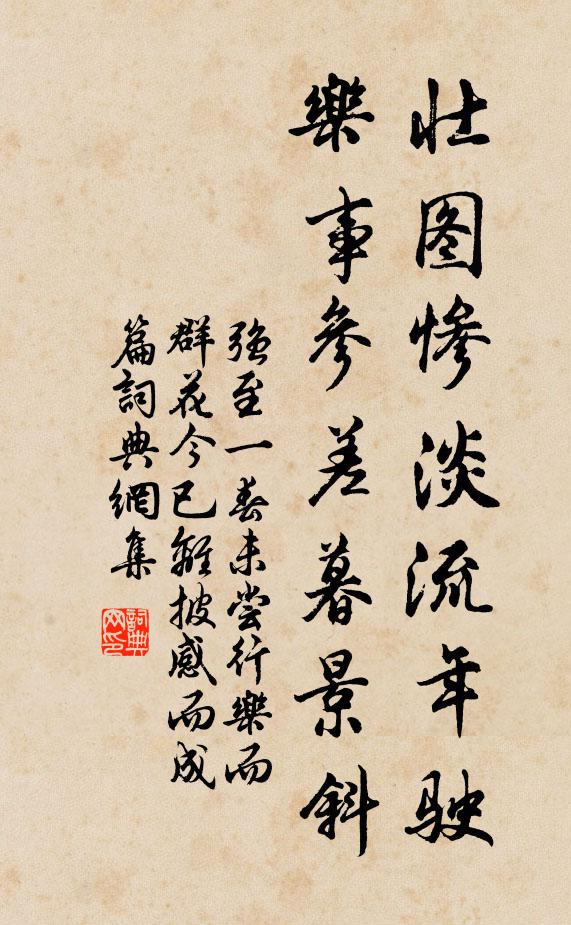 壮图惨淡流年驶
樂事参差暮景斜
强至一春未尝行樂而
群花今已離披感而成
篇詞典網集
詞典
网印